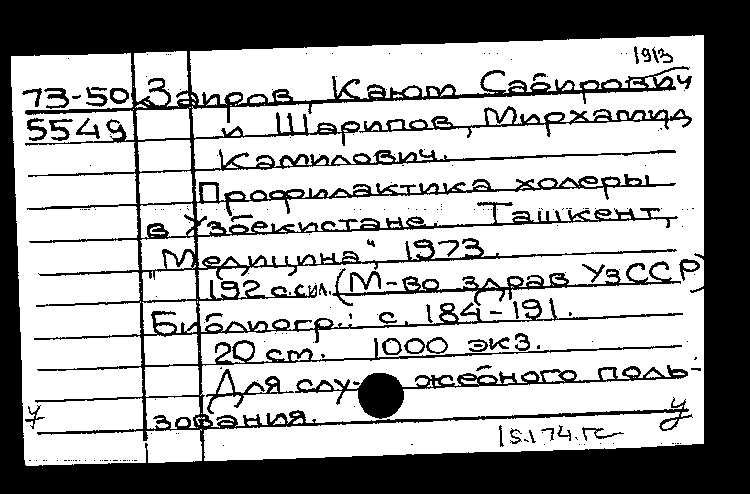 1913
73-50к Заиров, Каюм Сабирович
5549 и Шарипов, Мирхамид
Камилович.
Профилактика холеры
в Узбекистане. Ташкент,
"Медицина", 1973.
192 с.с ил. (М-во здрав УзССР)
Библиогр.: с. 184-191.
20 см. 1000 экз.
Для слу- жебного поль-
зования.
у